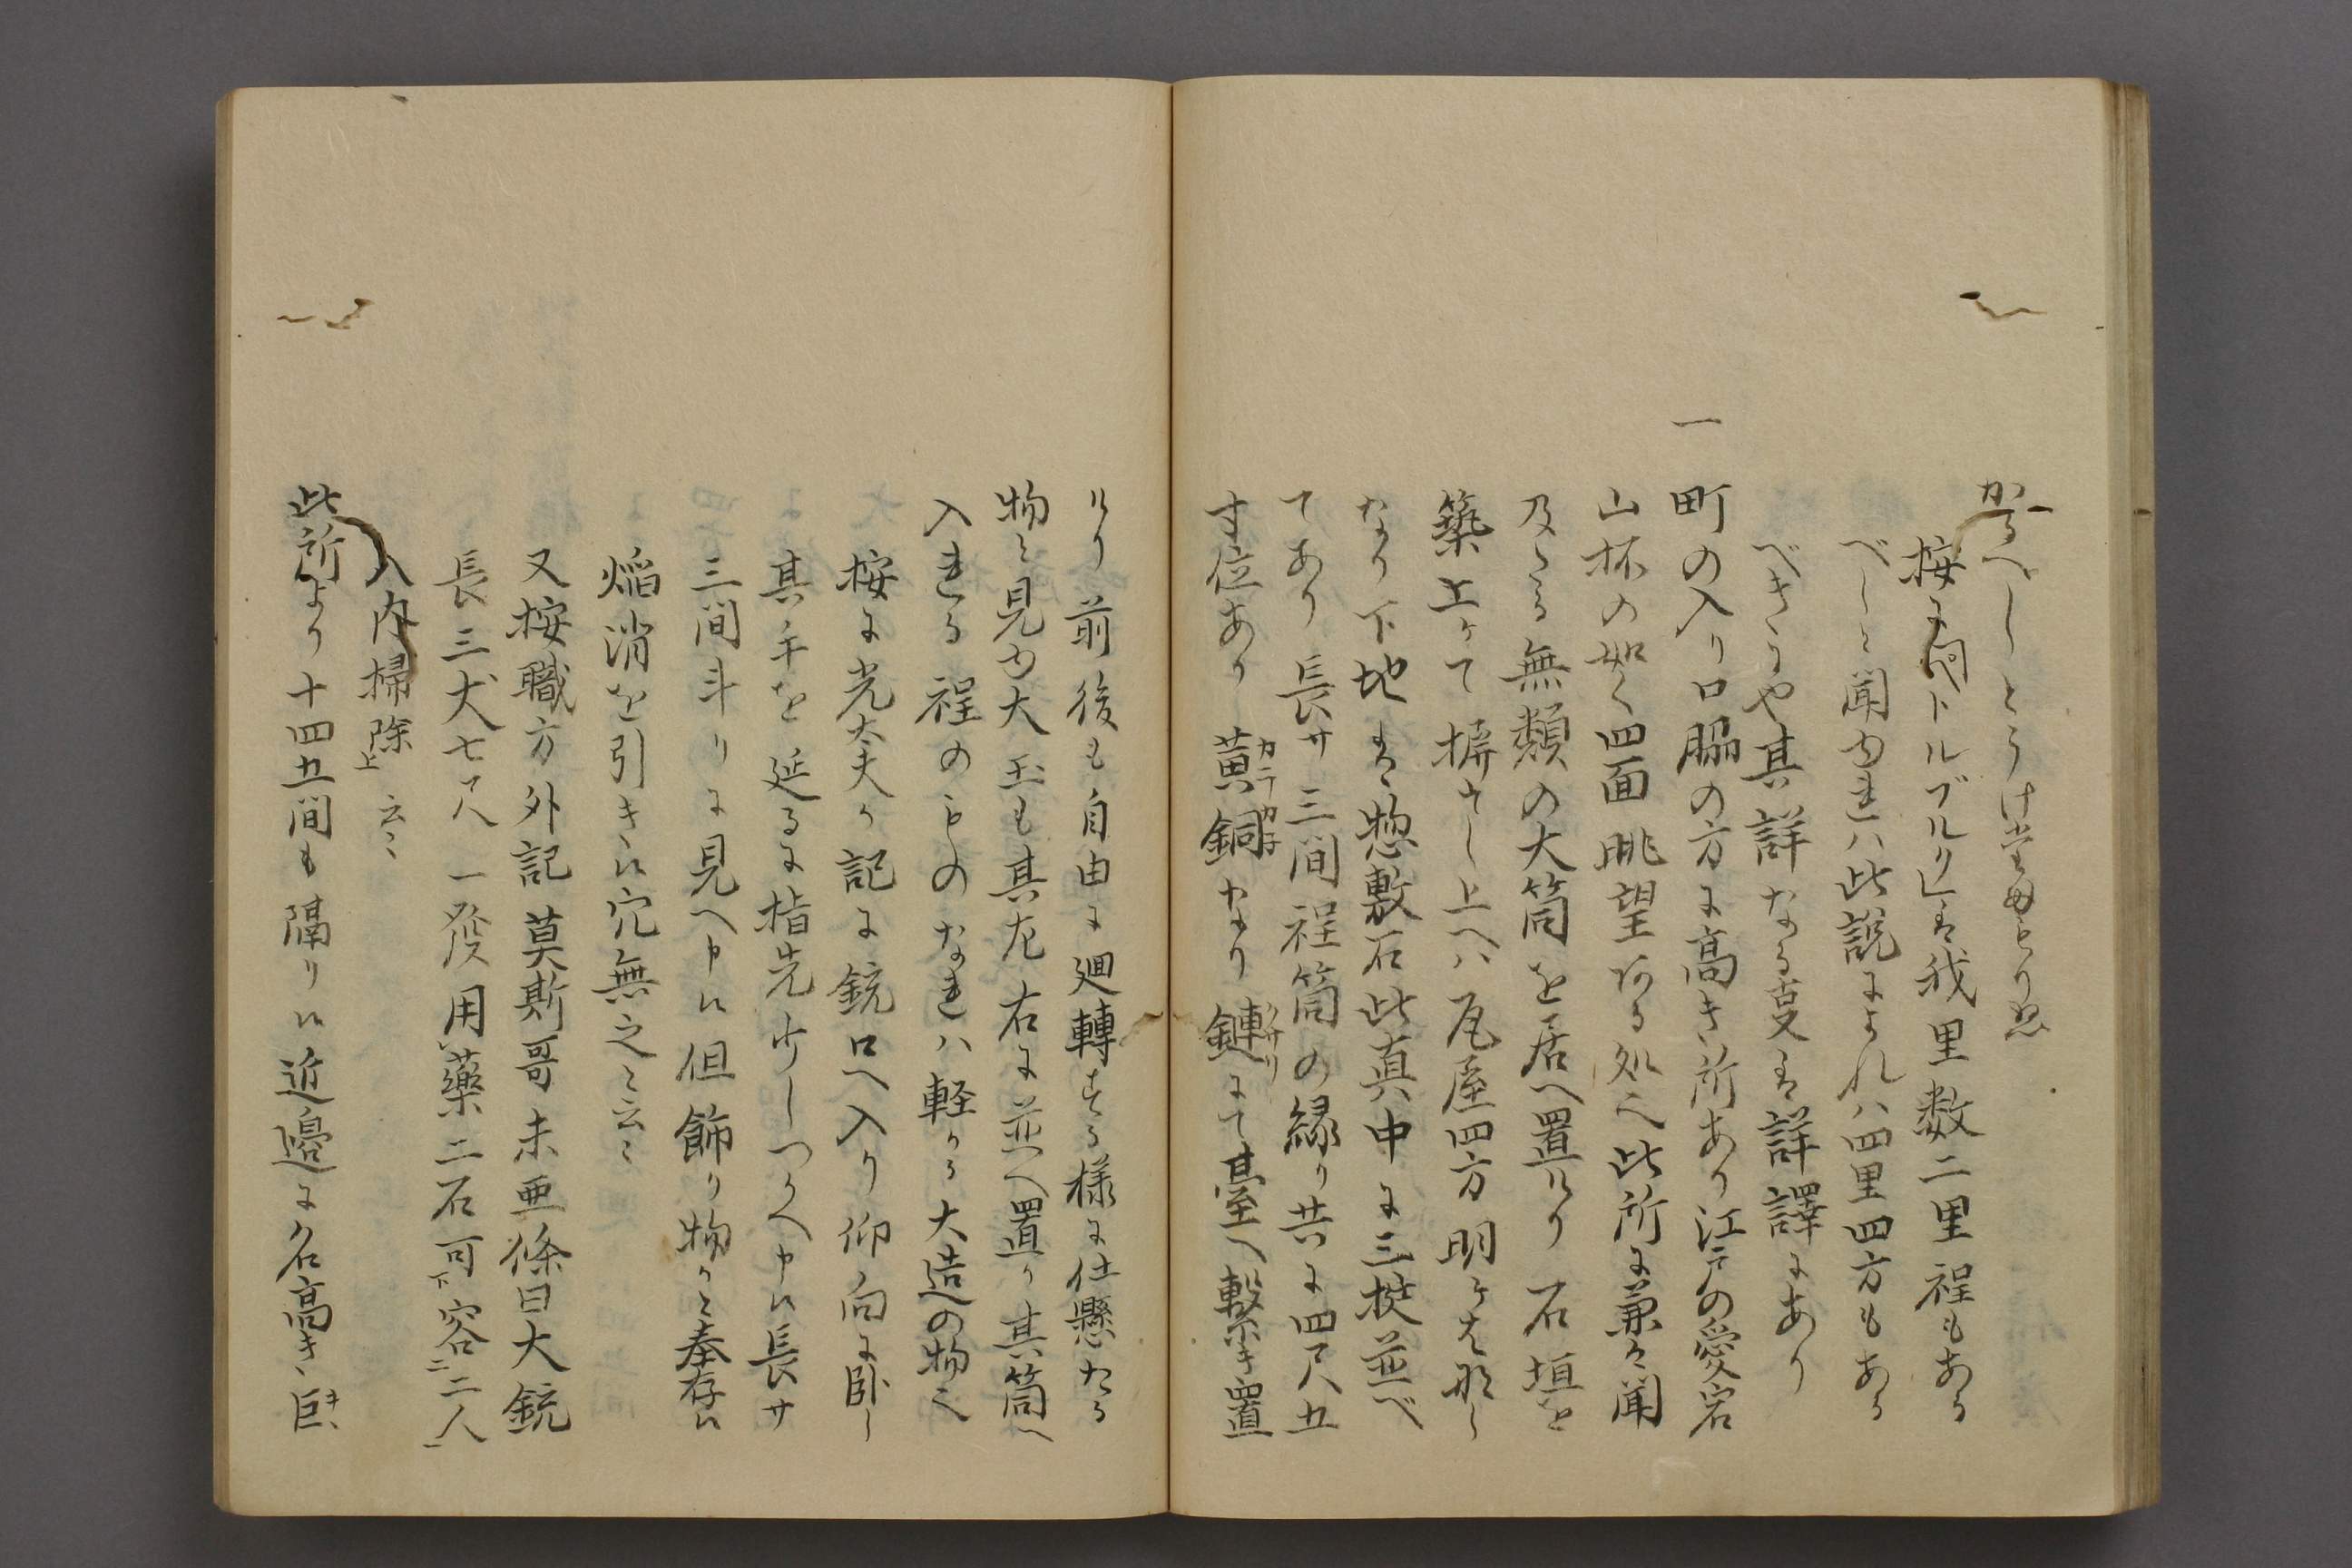 かるべしとうけ
按に「ペトルブルク」は我里数二里程もある
べしと聞ゆれハ此説によれハ四里四方もある
べきにや其詳なる事は詳譯にあり
一町の入り口脇の方に高き所あり江戸の愛宕
山抔の如く四面眺望ある処也此所に兼て聞
及たる無類の大筒を居へ置けり石垣を
築上けて摒さし上ハ瓦屋四方明ケはなし
なり下地は惣敷石此真中に三挺並べ
てあり長サ三間程筒の縁り共に四尺五
寸位あり黄銅カラカネなり鏈クサリにて臺へ繋き置
けり前後も自由に廻轉する様に仕懸たる
物と見ゆ大玉も其左右に並へ置り其筒へ
入れる程のものなれハ軽から大造の物也
按に光太夫か記に銃口へ入り仰向に臥し
其手を延るに指先少しつかへ申候長サ
三間斗りに見へ申候但飾り物かと奉存候
焔消を引き候穴無之と云々
又按職方外記莫斯哥未亜條曰大銃
長三丈七尺一發用藥二石可下容二二人一
入内掃除上云々
此所より十四五間も隔り候近邊に名高き巨